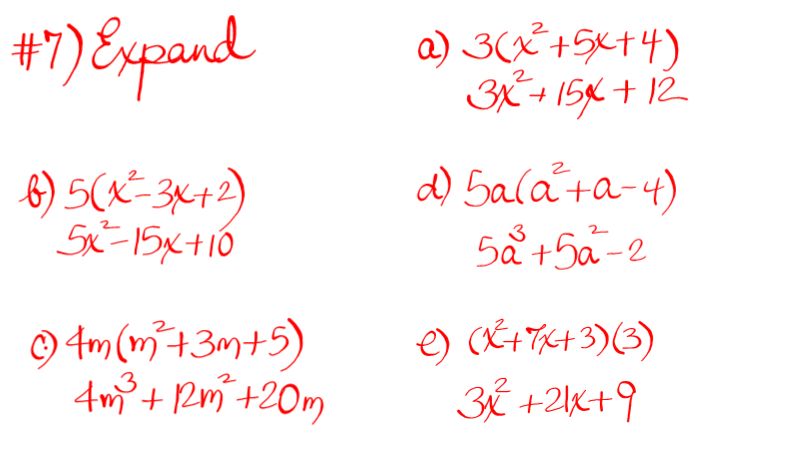 #7) Expand
a) 3(x²+5x+4)
3x²+15x+12
b) 5(x²-3x+2)
5x²-15x+10
d) 5a(a²+a-4)
5a³+5a²-2
c) 4m(m²+3m+5)
4m³+12m²+20m
e) (x²+7x+3)(3)
3x²+21x+9